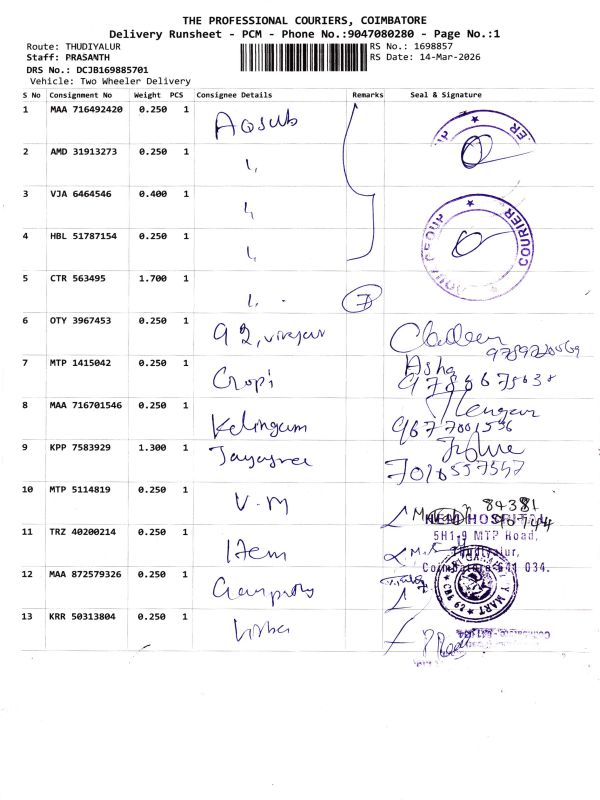 THE PROFESSIONAL COURIERS, COIMBATORE
Delivery Runsheet - PCM - Phone No.:9047080280 - Page No.:1
Route: THUDIYALUR
RS No.: 1698857
Staff: PRASANTH
RS Date: 14-Mar-2026
DRS No.: DCJB169885701
Vehicle: Two Wheeler Delivery
S No Consignment No Weight PCS Consignee Details Remarks Seal & Signature
1 MAA 716492420 0.250 1
2 AMD 31913273 0.250 1
3 VJA 6464546 0.400 1
4 HBL 51787154 0.250 1
COURIER
5 CTR 563495 1.700 1
7
6 OTY 3967453 0.250 1
7 MTP 1415042 0.250 1 Gopi Asha
8 MAA 716701546 0.250 1 Kalingam
9677001556
9 KPP 7583929 1.300 1 Jayasree
7010557557
10 MTP 5114819 0.250 1 V.M
84381
HOSPITAL
5H1-9 MTP Road,
11 TRZ 40200214 0.250 1 Item
Thudiyalur,
Coimbatore-641 034.
12 MAA 872579326 0.250 1
MART
13 KRR 50313804 0.250 1